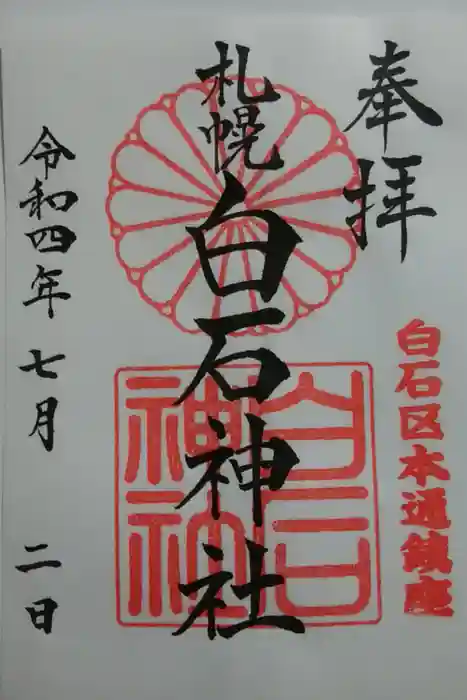 奉拝
白石区本通鎮座
札幌白石神社
白石神社
令和四年七月二日